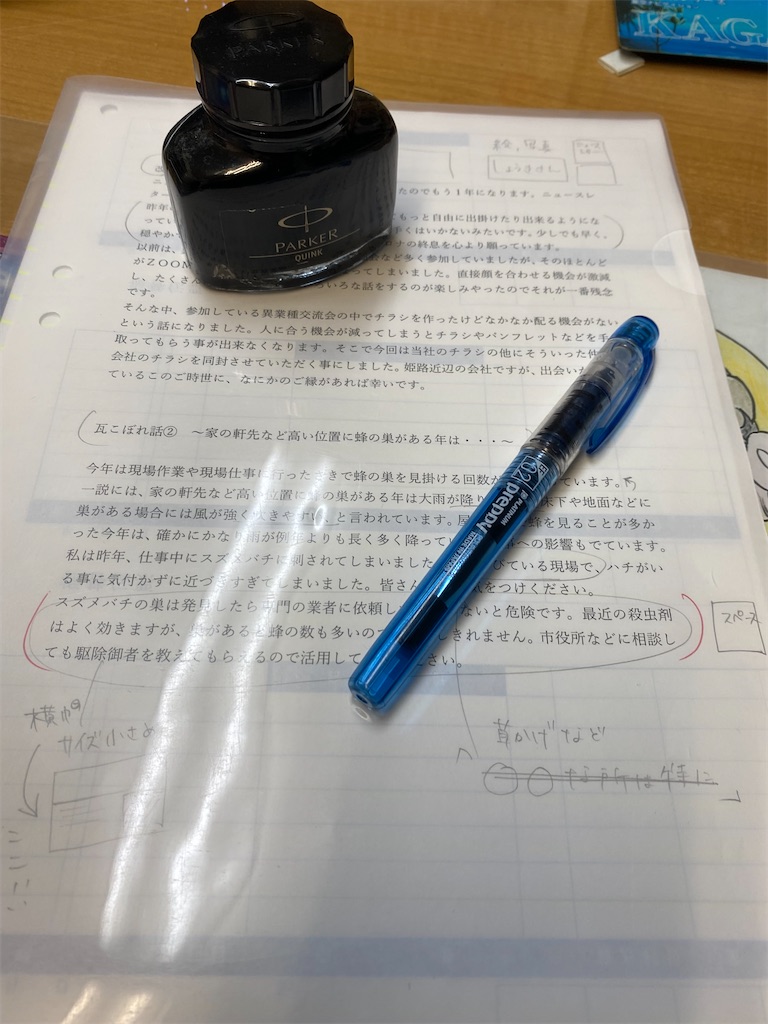 KAGA
PARKER
絵,写真
しょうきゃく
PARKER
QUINK
たのでもう1年になります。ニュースレ
ター
昨年
もっと自由に出掛けたり出来るようにな
ってい
手くはいかないみたいです。少しでも早く、
穏やかで
ナの終息を心より願っています。
以前は、
など多く参加していましたが、そのほとんど
がZOOM
ってしまいました。直接顔を合わせる機会が激減
し、たくさん
いろいろな話をするのが楽しみやったのでそれが一番残念
です。
そんな中、参加している異業種交流会の中でチラシを作ったけどなかなか配る機会がない
という話になりました。人に合う機会が減ってしまうとチラシやパンフレットなどを手
取ってもらう事が出来なくなります。そこで今回は当社のチラシの他にそういった他
会社のチラシを同封させていただく事にしました。姫路近辺の会社ですが、出会い
ているこのご時世に、なにかのご縁があれば幸いです。
瓦こぼれ話② ~家の軒先など高い位置に蜂の巣がある年は・・・~
今年は現場作業や現場仕事に行ったさきで蜂の巣を見掛ける回数が ています。
一説には、家の軒先など高い位置に蜂の巣がある年は大雨が降り 床下や地面などに
巣がある場合には風が強く吹きやすい、と言われています。屋 蜂を見ることが多か
った今年は、確かにかなり雨が例年よりも長く多く降ってい 事への影響もでています。
私は昨年、仕事中にスズメバチに刺されてしまいました びている現場で、ハチがい
る事に気付かずに近づきすぎてしまいました。皆さん 気をつけください。
スズメバチの巣は発見したら専門の業者に依頼し ないと危険です。最近の殺虫剤
はよく効きますが、巣があると蜂の数も多いので しきれません。市役所などに相談し
ても駆除御者を教えてもらえるので活用して ださい。
スペース
preppy
PLATINUM
0.2
横巾
サイズ小さめ
草かげなど
な所は特に